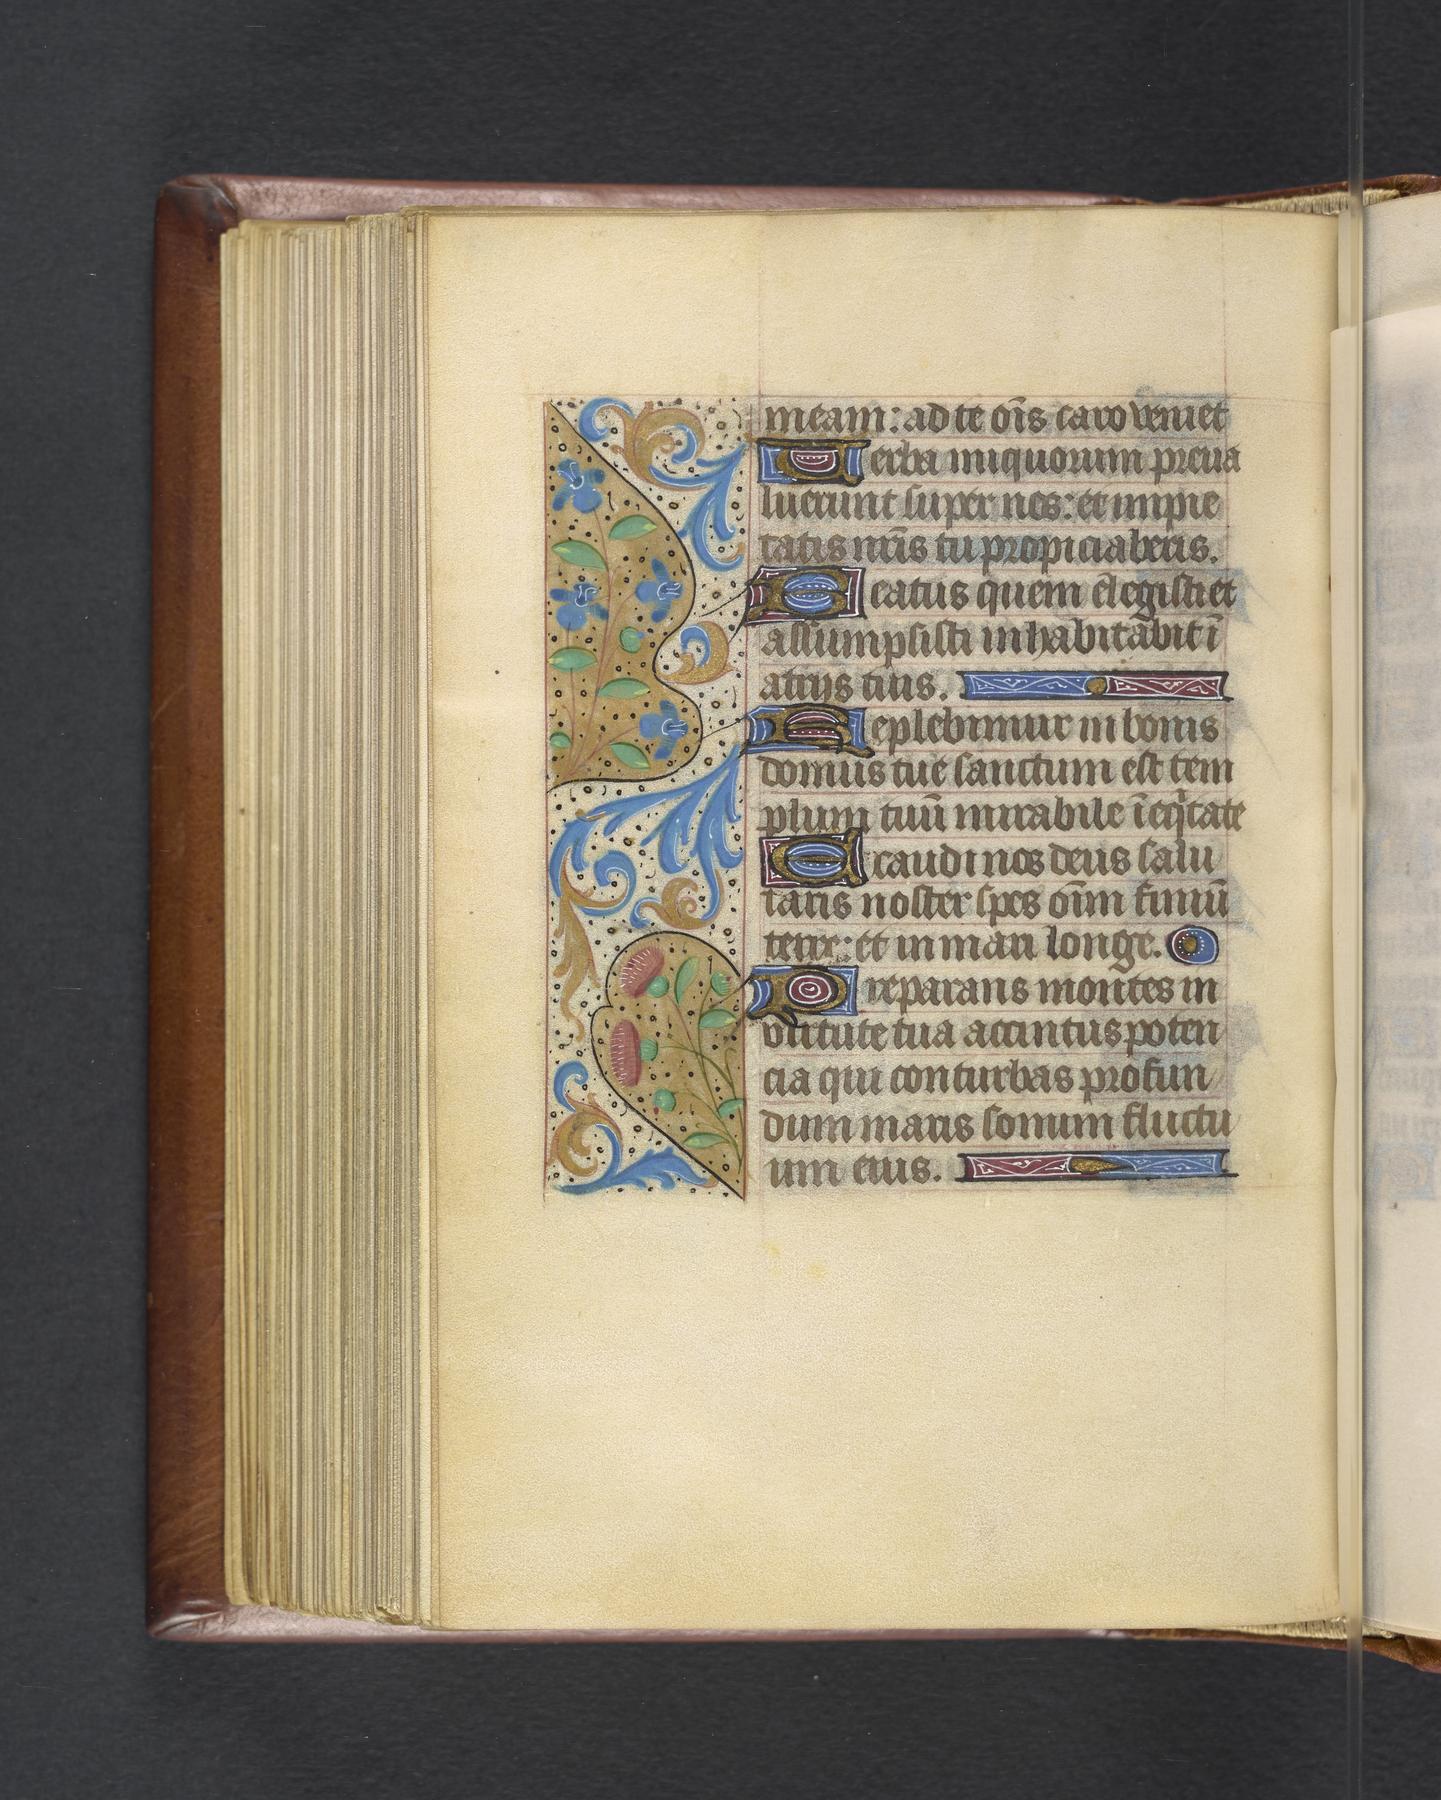 meam: ad te oīs caro veniet
Verba iniquorum preua
luerunt super nos: et impie
tatis nrīs tu propiciaberis.
Beatus quem elegisti et
assumpsisti inhabitabit ī
atrijs tuis.
Replebimur in bonis
domus tue sanctum est tem
plum tuū mirabile ī eqͥtate
Exaudi nos deus salu
taris noster spes oīm finiū
terre: et in mari longe.
Preparans montes in
virtute tua accintus poten
cia qui conturbas profun
dum maris sonum fluctu
um eius.